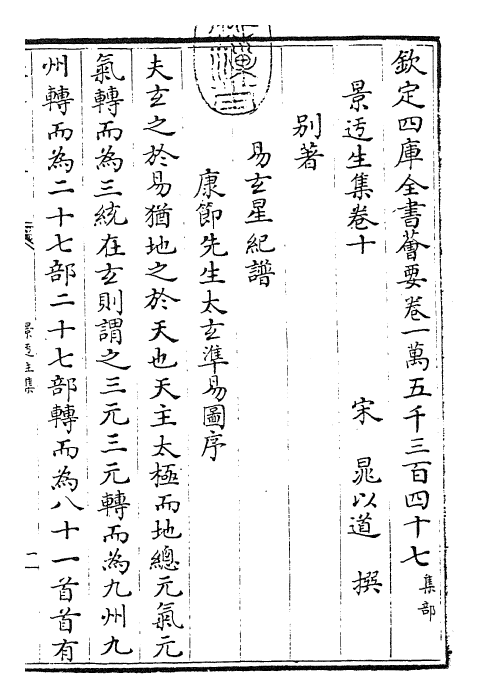 欽定四庫全書薈要卷一萬五千三百四十七 集部
景迃生集卷十
宋 晁以道 撰
別著
易玄星紀譜
康節先生太玄準易圖序
夫玄之於易猶地之於天也天主太極而地總元氣元
氣轉而為三統在玄則謂之三元三元轉而為九州九
州轉而為二十七部二十七部轉而為八十一首首有
景迃生集